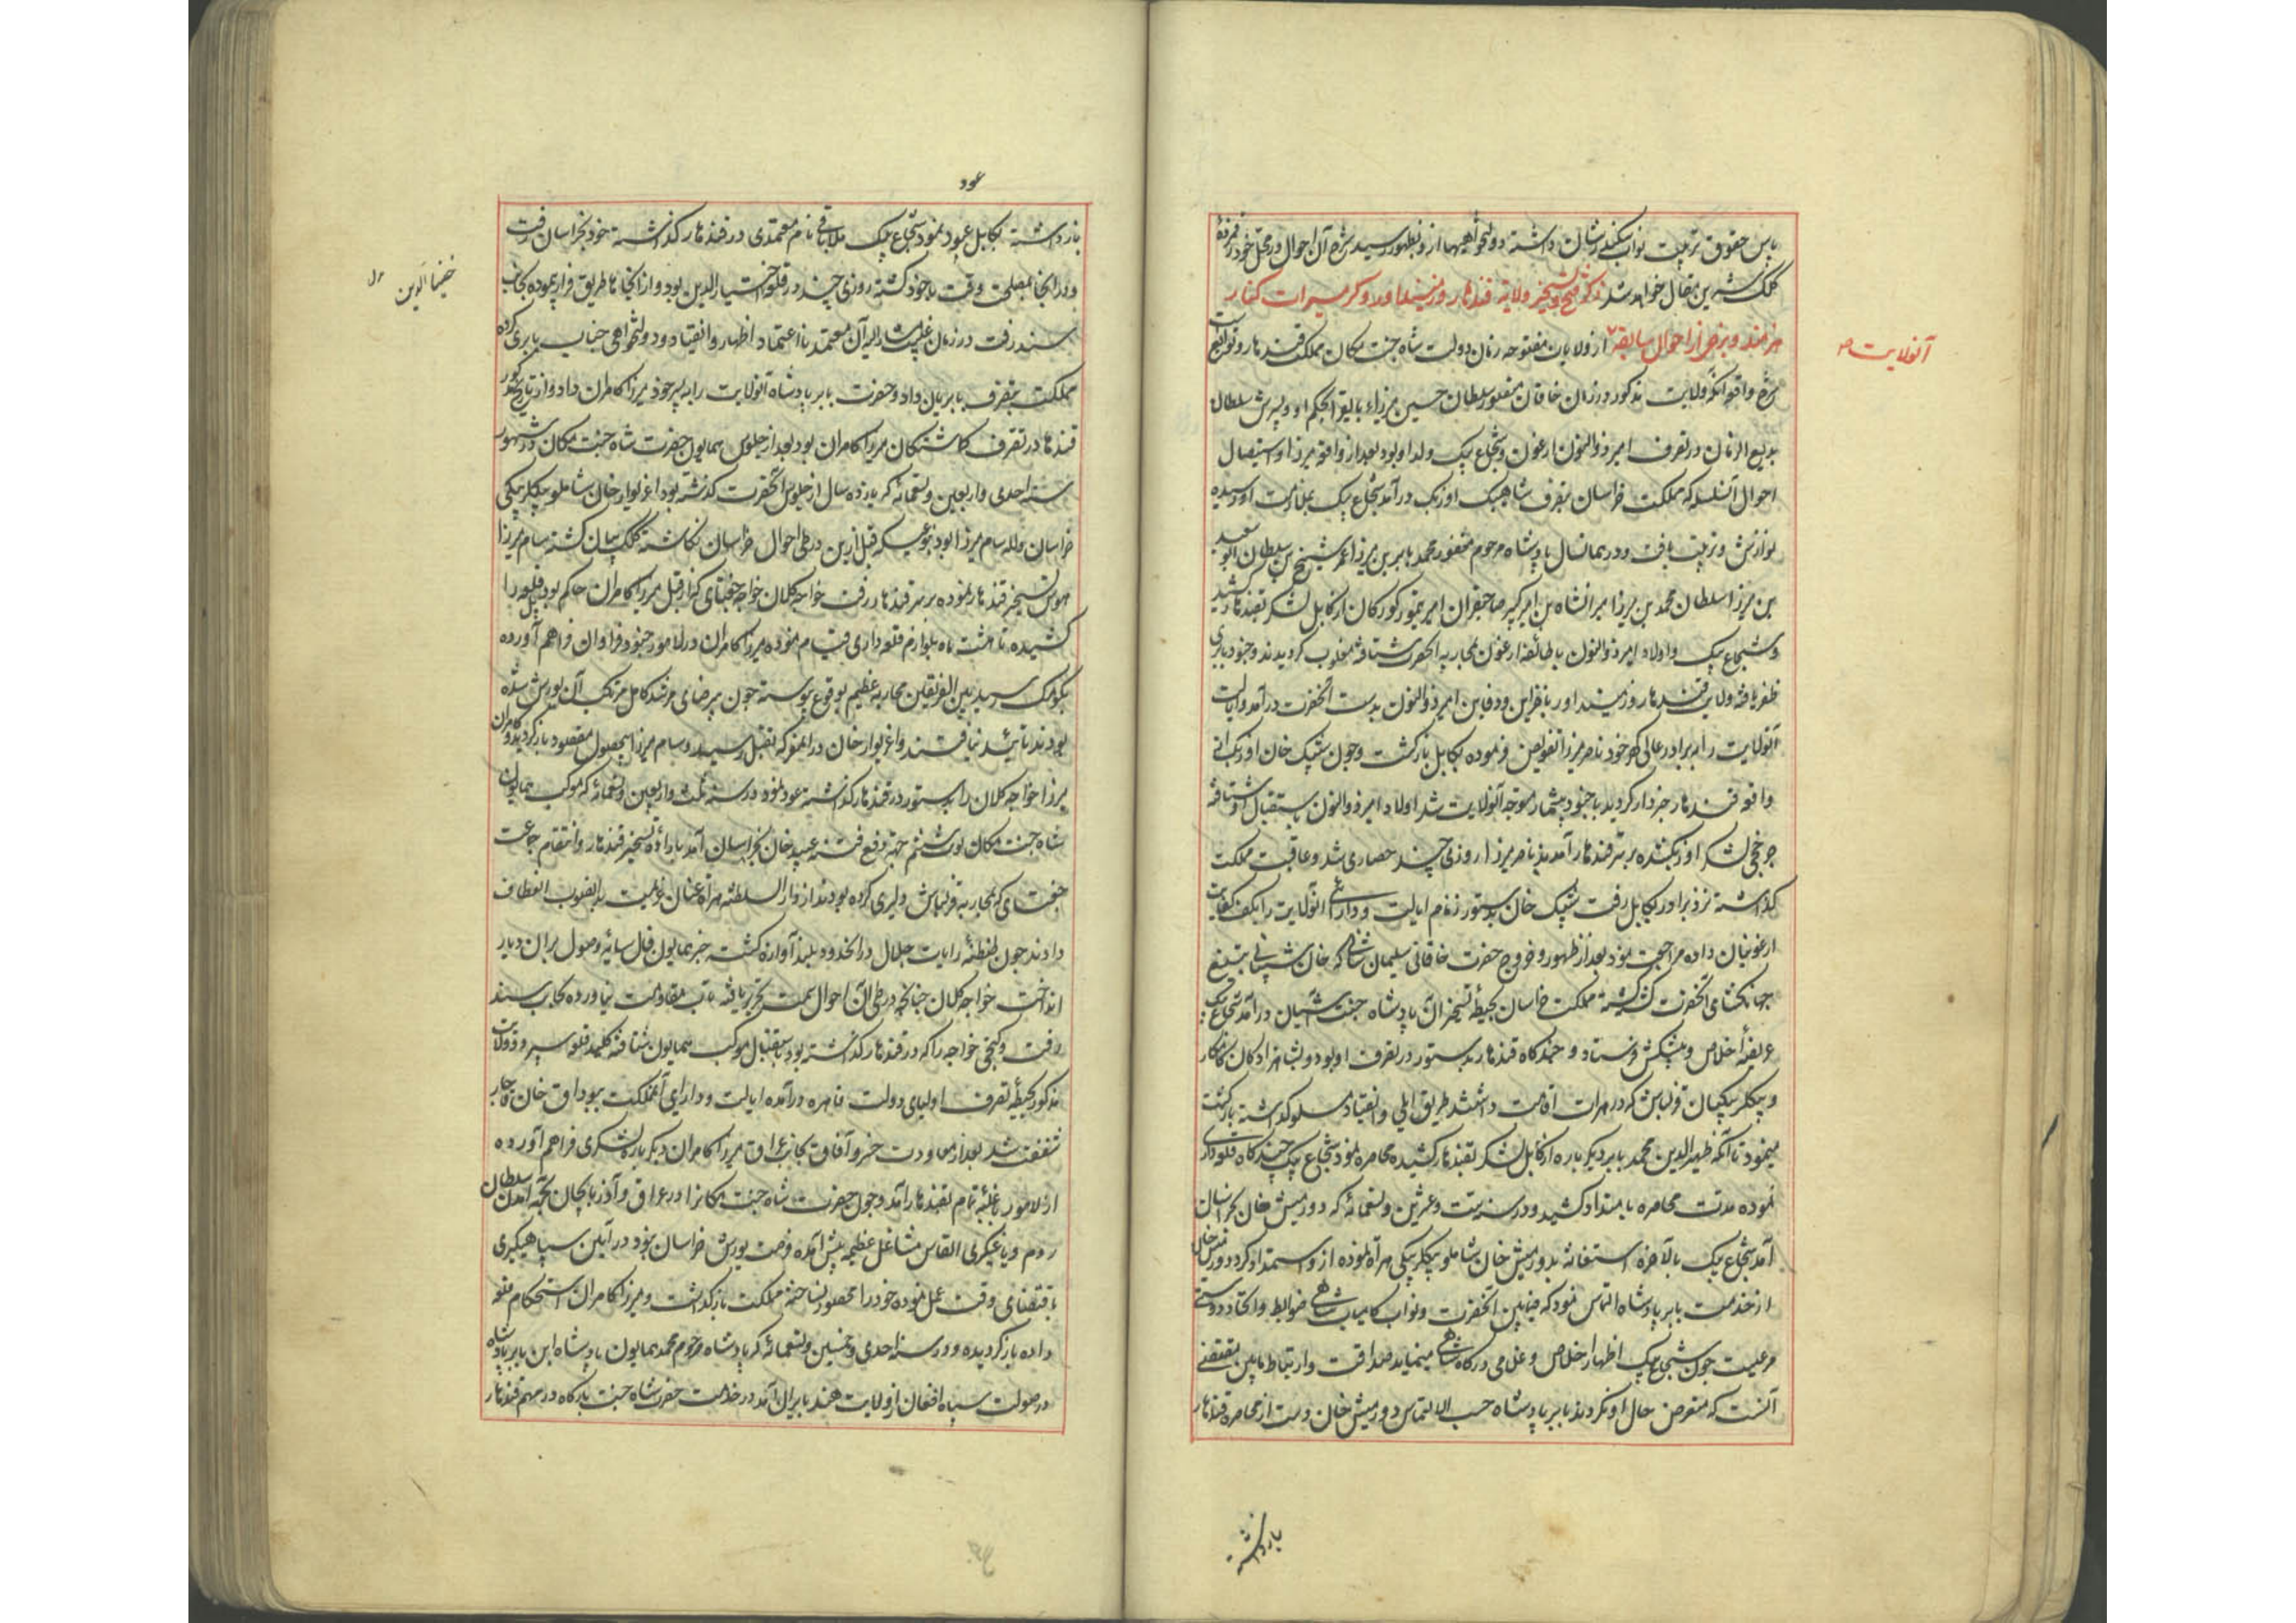 پاس حقوق تربیت نواب سکندر شان داشته دولتخواهیها ازو بظهور رسید شرح آن احوال در محل خود رقمزدهٔ
کلک شیرین مقال خواهد شد ذکر فتح و تسخیر ولایة قندهار و زمینداور و گرمسیرات کنار
هیرمند و برخی از احوال سابقهٔ از ولایات مفتوحه زمان دولت شاه جنت مکان مملکت قندهار و توابع است
آنولایت
شرح واقعه آنکه ولایت مذکور در زمان خاقان مغفور سلطان حسین میرزاء بایقرا بحکم او و پسرش سلطان
بدیع الزمان در تصرف امیر ذوالنون ارغون و شجاع بیک ولد او بود بعد از واقعه میرزا و استیصال
احوال آنسلسله که مملکت خراسان بتصرف شاهیبک اوزبک درآمد شجاع بیک بملازمت او رسیده
نوازش و تربیت یافت و در همانسال پادشاه مرحوم مغفور محمد بابر بن میرزا عمر شیخ بن سلطان ابو سعید
بن میرزا سلطان محمد بن میرزا میرانشاه بن امیر کبیر صاحبقران امیر تیمور کورکان از کابل لشکر بقندهار کشید
و شجاع بیک و اولاد امیر ذوالنون با طائفه ارغون بمحاربه آنحضرت شتافته مغلوب گردیدند و جنود بابری
ظفر یافته ولایت قندهار و زمینداور با خزاین و دفاین امیر ذوالنون بدست آنحضرت درآمد و ایالت
آنولایت را به برادر عالی گهر خود ناصر میرزا تفویض فرموده بکابل بازگشت و چون شیبک خان اوزبک از
واقعه قندهار خبردار گردید با جنود بیشمار متوجه آنولایت شد اولاد امیر ذوالنون باستقبال او شتافته
چرخچی لشکر اوزبک شده بر سر قندهار آمدند ناصر میرزا روزی چند حصاری شد و عاقبت مملکت
گذاشته نزد برادر بکابل رفت شیبک خان بدستور زمام ایالت و دارائی آنولایت را بکف کفایت
ارغونیان داده مراجعت نمود بعد از ظهور و خروج حضرت خاقانی سلیمان شانی که خان شیبانی بتیغ
جهانگشای آنحضرت کشته گشته مملکت خراسان بحیطهٔ تسخیر آن پادشاه جنت آشیان درآمد شجاع بیک
عریضهٔ اخلاص و پیشکش فرستاد و چندگاه قندهار بدستور در تصرف او بود و بشاهزادگان کامکار
و بیگلربیگیان قزلباش که در هرات اقامت داشتند طریق ایلی و انقیاد مسلوک داشته بازگشت
مینمود تا آنکه ظهیر الدین محمد بابر دیگر باره از کابل لشکر بقندهار کشیده محاصره نمود شجاع بیک چندگاه قلعه داری
نموده مدت محاصره بامتداد کشید و در سنه ست و عشرین و تسعمائه که دورمیش خان بخراسان
آمد شجاع بیک بالاخره استغاثه بدورمیش خان شاملو بیگلربیگی هراة نموده ازو استمداد کرد دورمیش خان
از خدمت بابر پادشاه التماس نمود که فیمابین آنحضرت و نواب کامیاب شاهی ضوابط و اتحاد و دوستی
مرعیست چون شجاع بیک اظهار اخلاص و غلامی درگاه شاهی مینماید صداقت و ارتباط مابین مقتضی
آنست که متعرض حال او نگردند بابر پادشاه حسب الالتماس دورمیش خان دست از محاصره قندهار
بازداشته
عود
بازداشته بکابل عود نمود شجاع بیک ملا باقی نام معتمدی در قندهار گذاشته خود بخراسان رفت
و در آنجا بمصلحت وقت باخوذ گشته روزی چند در قلعه اختیار الدین بود و از آنجا بطریق فرار پیموده بجانب
اختیار الدین
سند رفت در زمان غیبت مشار الیه آن معتمد نا اعتماد اظهار و انقیاد و دولتخواهی جناب بابری کرده
مملکت بتصرف بابریان داد و حضرت بابر پادشاه آنولایت را به پسر خود میرزا کامران داد و از تاریخ مذکور
قندهار در تصرف گماشتگان میرزا کامران بود بعد از جلوس همایون حضرت شاه جنت مکان در شهور
سنه احدی و اربعین و تسعمائه که یازده سال از جلوس آنحضرت گذشته بود اغزیوار خان شاملو بیگلربیگی
خراسان و لله سام میرزا بود بنوعیکه قبل ازین در طی احوال خراسان نگاشته کلک بیان گشته سام میرزا
هوس تسخیر قندهار نموده بر سر قندهار رفت خواجه کلان خواجه جغتای که از قبل میرزا کامران حاکم بود قلعه را
کشیده تا هشت ماه بلوازم قلعه داری قیام نموده میرزا کامران در لاهور جنود فراوان فراهم آورده
بکومک رسید بین الفریقین محاربه عظیم بوقوع پیوسته چون بیرضای مرشد کامل مرتکب آن یورش شده
بودند تائید نیافتند و اغزیوار خان در آنمعرکه بقتل رسید و سام میرزا بیحصول مقصود بازگردید و کامران
میرزا خواجه کلان را بدستور در قندهار گذاشته عود نمود در سنه ثلث و اربعین و تسعمائه که موکب همایون
شاه جنت مکان نوبت ششم جهة دفع فتنه عبید خان بخراسان آمد باراده تسخیر قندهار و انتقام جماعت
جغتای که بمحاربه قزلباش دلیری کرده بودند از دار السلطنه هراة عنان عزیمت بدانصوب انعطاف
دادند چون طنطنه رایات جلال در آنحدود بلند آوازه گشت خبر همایون فال سایه وصول بر آن دیار
انداخت خواجه کلان چنانچه در طی آن احوال سمت تحریر یافته تاب مقاومت نیاورده بجانب سند
رفت و کپچی خواجه را که در قندهار گذاشته بود باستقبال موکب همایون شتافته کلید قلعه سپرد و ولایت
مذکور بحیطهٔ تصرف اولیای دولت قاهره درآمده ایالت و دارایی آنمملکت ببوداق خان قاجار
شفقت شد بعد از معاودت خسرو آفاق بجانب عراق میرزا کامران دیگر باره لشکری فراهم آورده
از لاهور بغلبه تمام بقندهار آمد و چون حضرت شاه جنت مکان را در عراق و آذربایجان بجهة آمدن سلطان
روم و یاغیگری القاس مشاغل عظیمه پیش آمده فرصت یورش خراسان نبود در آیین سپاهیگری
باقتضای وقت عمل نموده خود را محصور نساخته مملکت بازگذاشت و میرزا کامران استحکام قلعه
داده بازگردیده و در سنه احدی و خمسین و تسعمائه که پادشاه مرحوم محمد همایون پادشاه ابن بابر پادشاه
در صولت سپاه افغان از ولایت هند بایران آمد در خدمت حضرت شاه جنت بارگاه در مهم قندهار